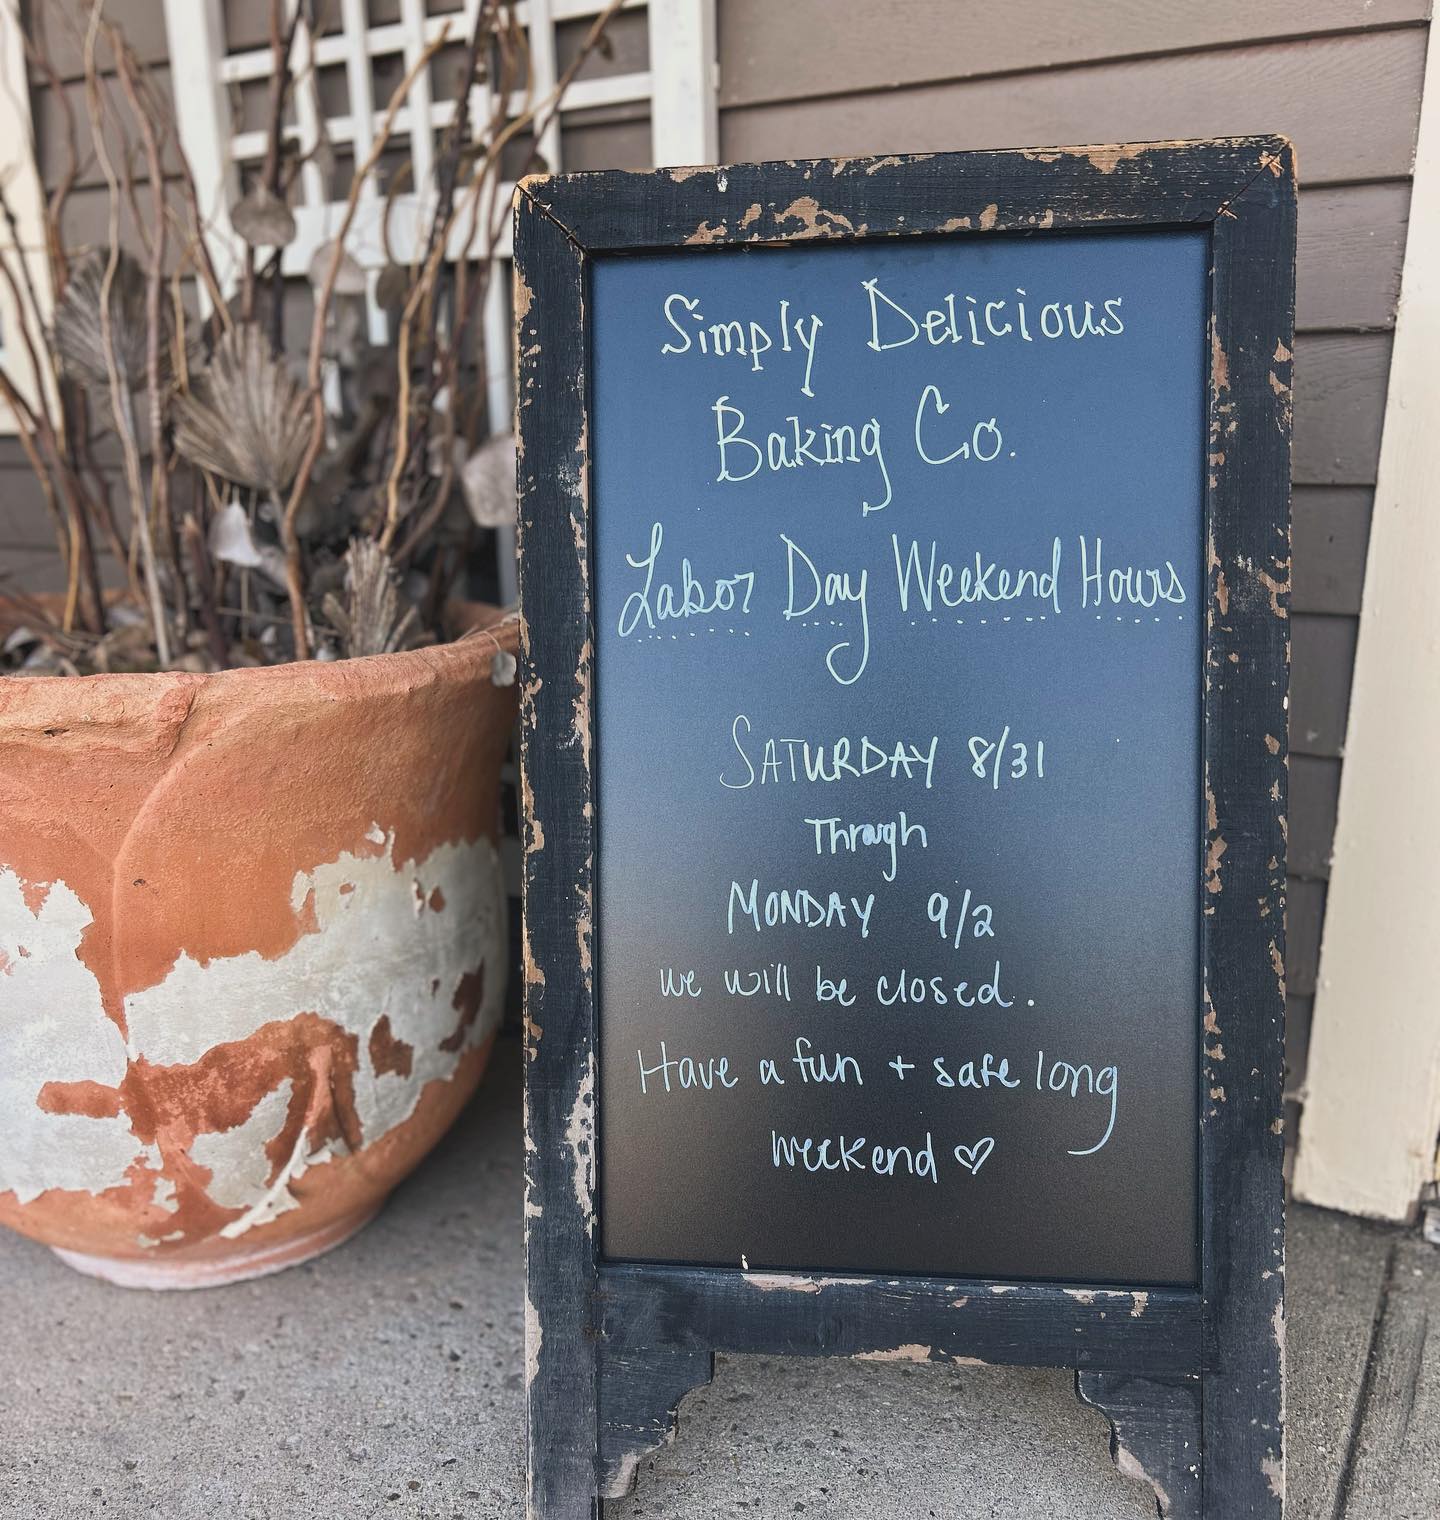 Simply Delicious
Baking Co.
Labor Day Weekend Hours
SATURDAY 8/31
Through
MONDAY 9/2
we will be closed.
Have a fun + safe long
weekend ♡